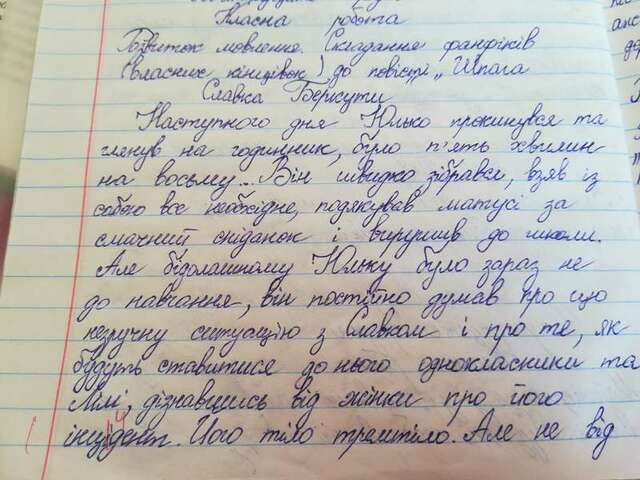 Класна робота
Розвиток мовлення. Складання фанфіків
(власних кінцівок) до повісті „Шпага
Славка Беркути
Наступного дня Юлько прокинувся та
глянув на годинник, було п'ять хвилин
на восьму... Він швидко зібрався, взяв із
собою все необхідне, подякував матусі за
смачний сніданок і вирушив до школи.
Але бідолашному Юльку було зараз не
до навчання, він постійно думав про цю
незручну ситуацію з Славком і про те, як
будуть ставитися до нього однокласники та
Лілі, дізнавшись від жінки про його
інцидент. Його тіло тремтіло. Але не від